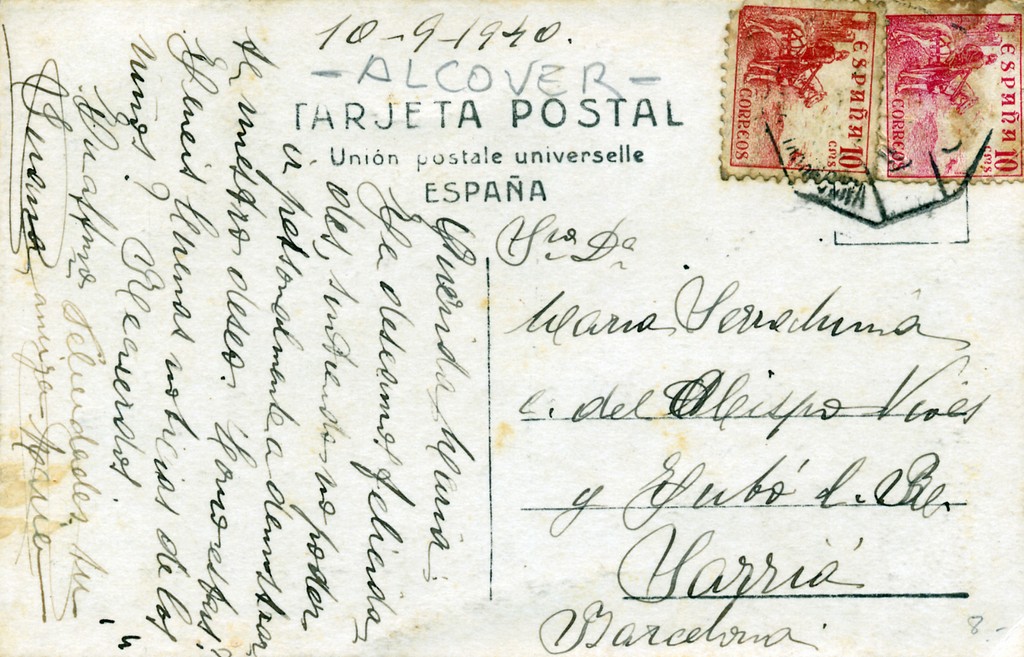 10-9-1940.
- ALCOVER -
TARJETA POSTAL
Unión postale universelle
ESPAÑA
ESPAÑA
CORREOS
10
CTS
ESPAÑA
CORREOS
10
CTS
Querida María
Te deseamos felicida-
des, sintiendo no poder
ir personalmente a demostrar
te nuestro deseo. Como estas?
Tienes buenas noticias de los
niños? Recuerdos.
Felicidades tu
amiga
Sra Da
Maria Serradima
c. del Obispo
y
Sarriá
Barcelona
8.-